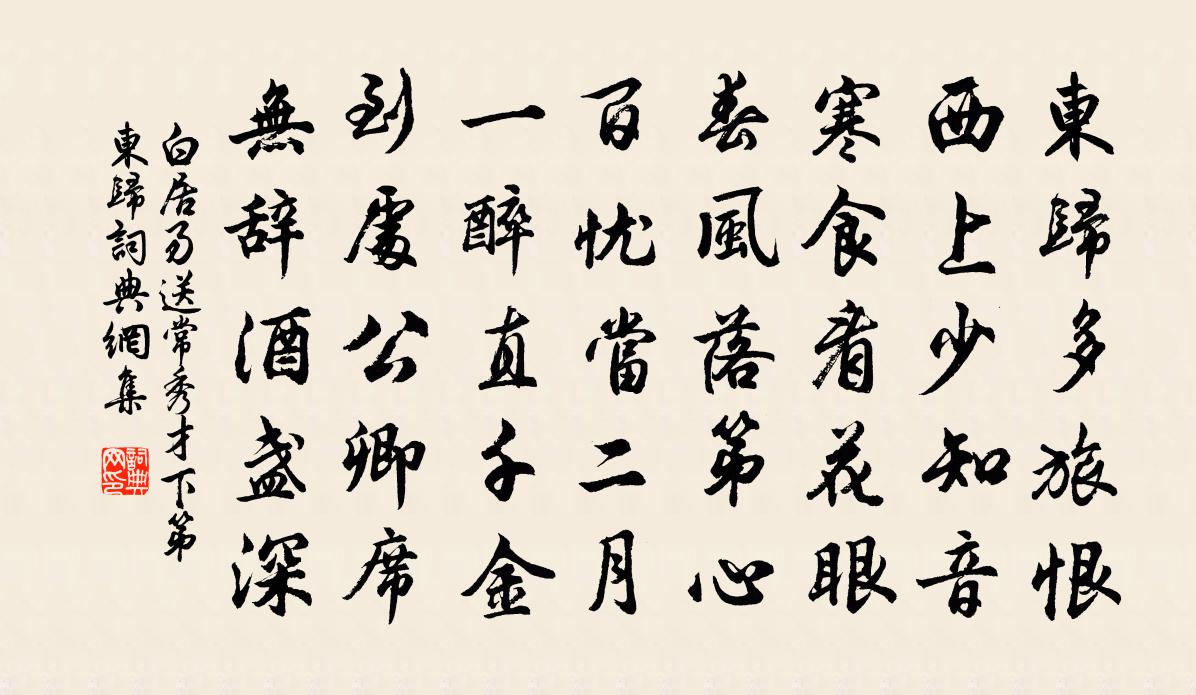 東歸多旅恨
西上少知音
寒食看花眼
春風落第心
百忧當二月
一醉直千金
到處公卿席
無辞酒盏深
白居易送常秀才下第
東歸詞典網集
詞典
网印